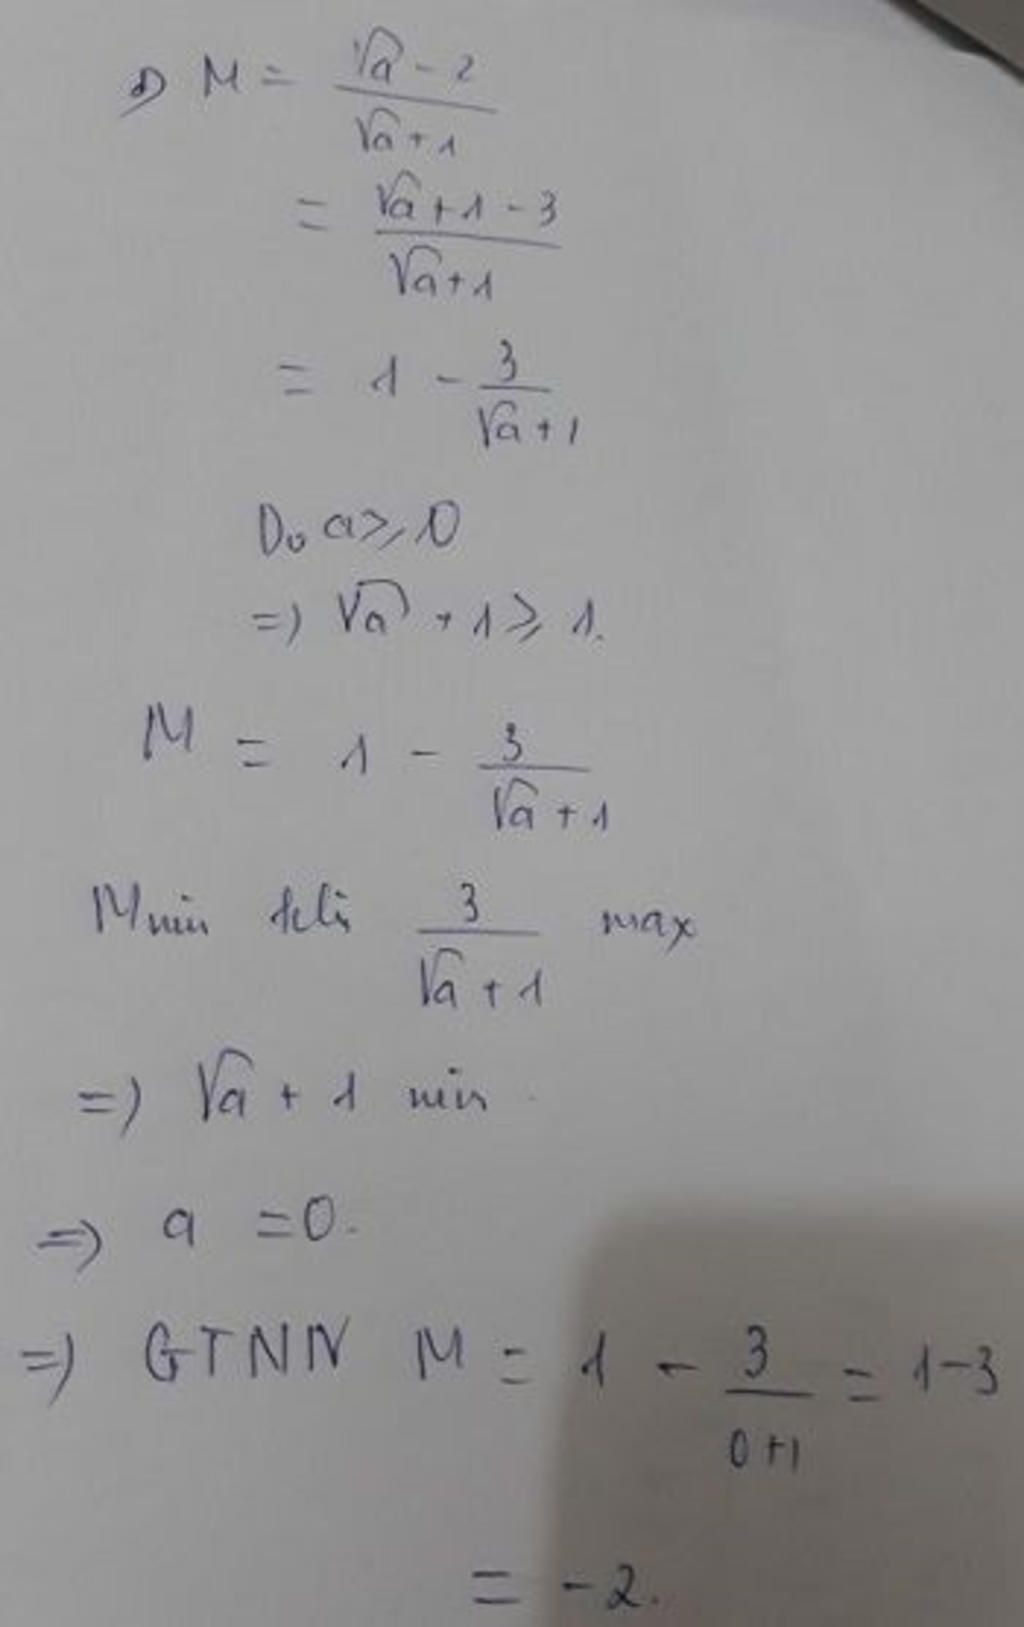 M = (√a - 2)/(√a + 1)
= (√a + 1 - 3)/(√a + 1)
= 1 - 3/(√a + 1)
Do a ≥ 0
=> √a + 1 ≥ 1.
M = 1 - 3/(√a + 1)
Mmin 3/(√a + 1) max
=> √a + 1 min
=> a = 0.
=> GTNN M = 1 - 3/(0+1) = 1-3
= -2.